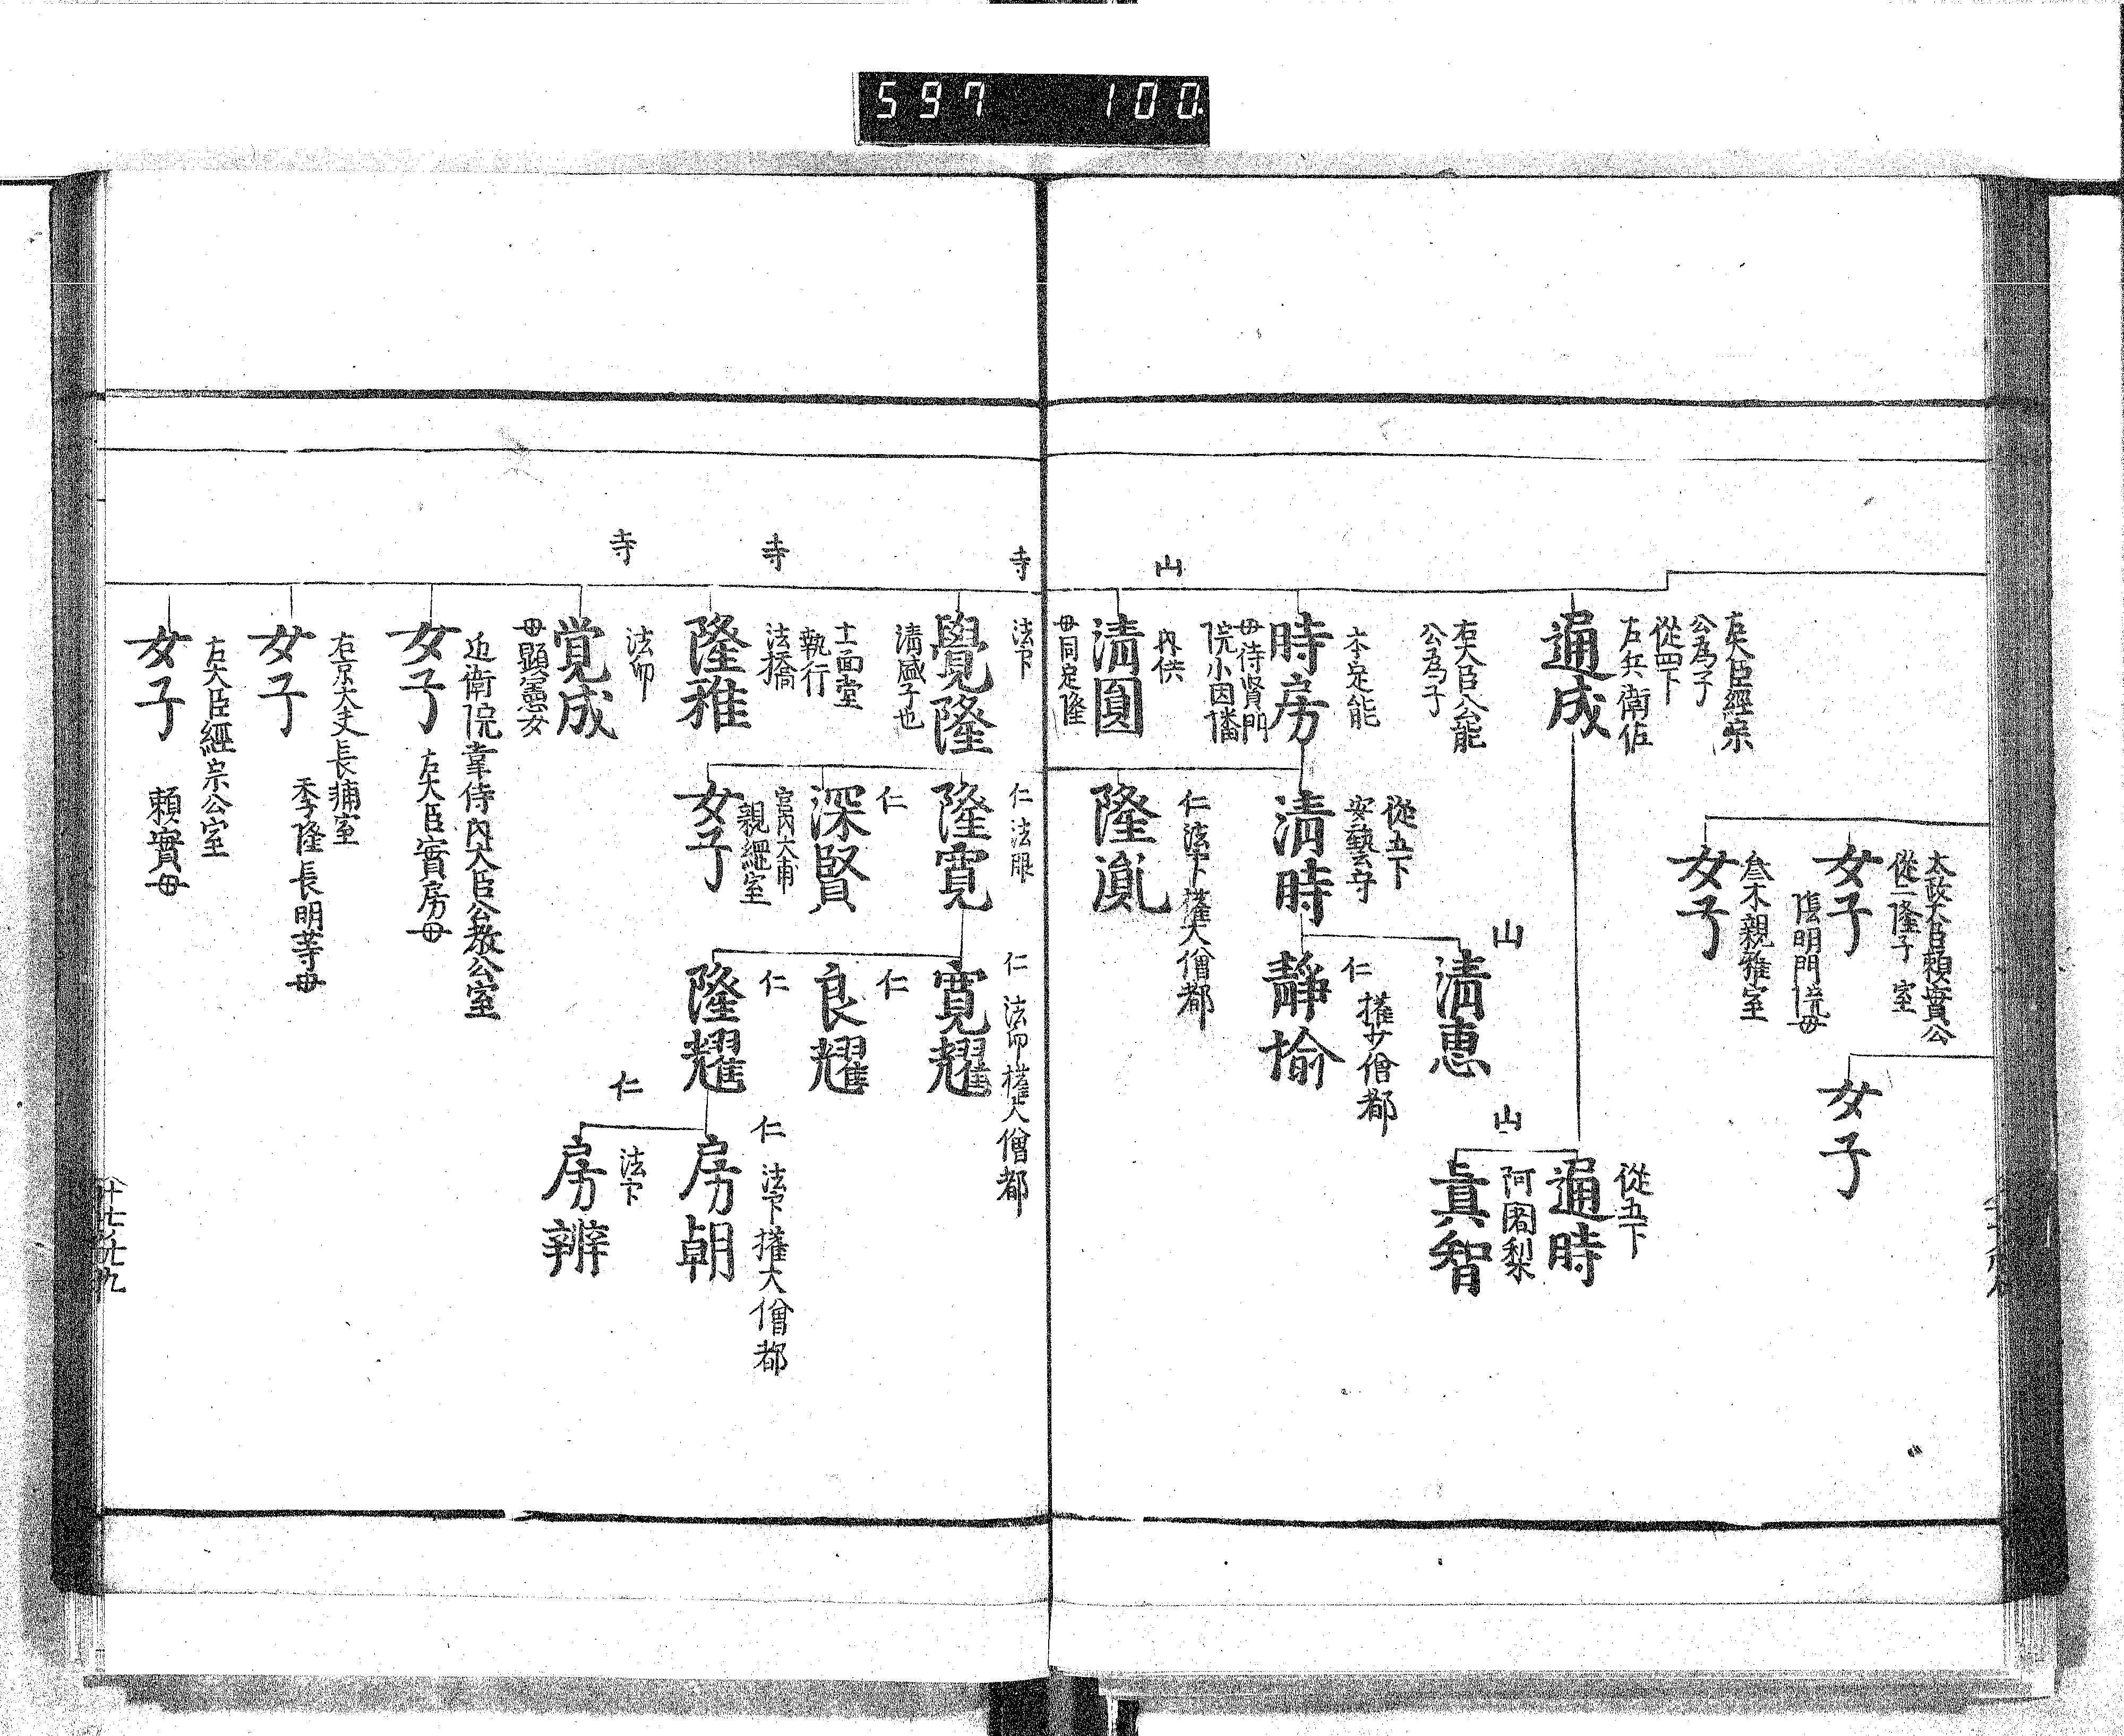 597 100
太政大臣賴實公
從二隆子室
女子
陰明門院母
叄木親雅室
女子
女子
左大臣經宗
公爲子
從四下
左兵衛佐
通成
從五下
通時
山
阿闍梨
眞智
右大臣公能
公爲子
本定能
時房
母待賢門
院小因幡
從五下
安藝守
清時
山
清惠
仁 權少僧都
靜愉
山
內供
清圓
母同定隆
仁 法印權大僧都
隆胤
寺
法下
覺隆
清盛子也
仁 法眼
隆寛
仁 法印權大僧都
寛耀
寺
十一面堂
執行
法橋
隆雅
仁
深賢
宮内大甫
親綱室
女子
仁
良耀
仁
隆耀
仁 法印權大僧都
房朝
仁
法下
房辨
寺
法印
覚成
母顯憲女
近衛院韋侍內大臣公教公室
女子
左大臣實房母
右京大夫長輔室
女子
季隆長明等母
左大臣經宗公室
女子
賴實母
十七ノ七九